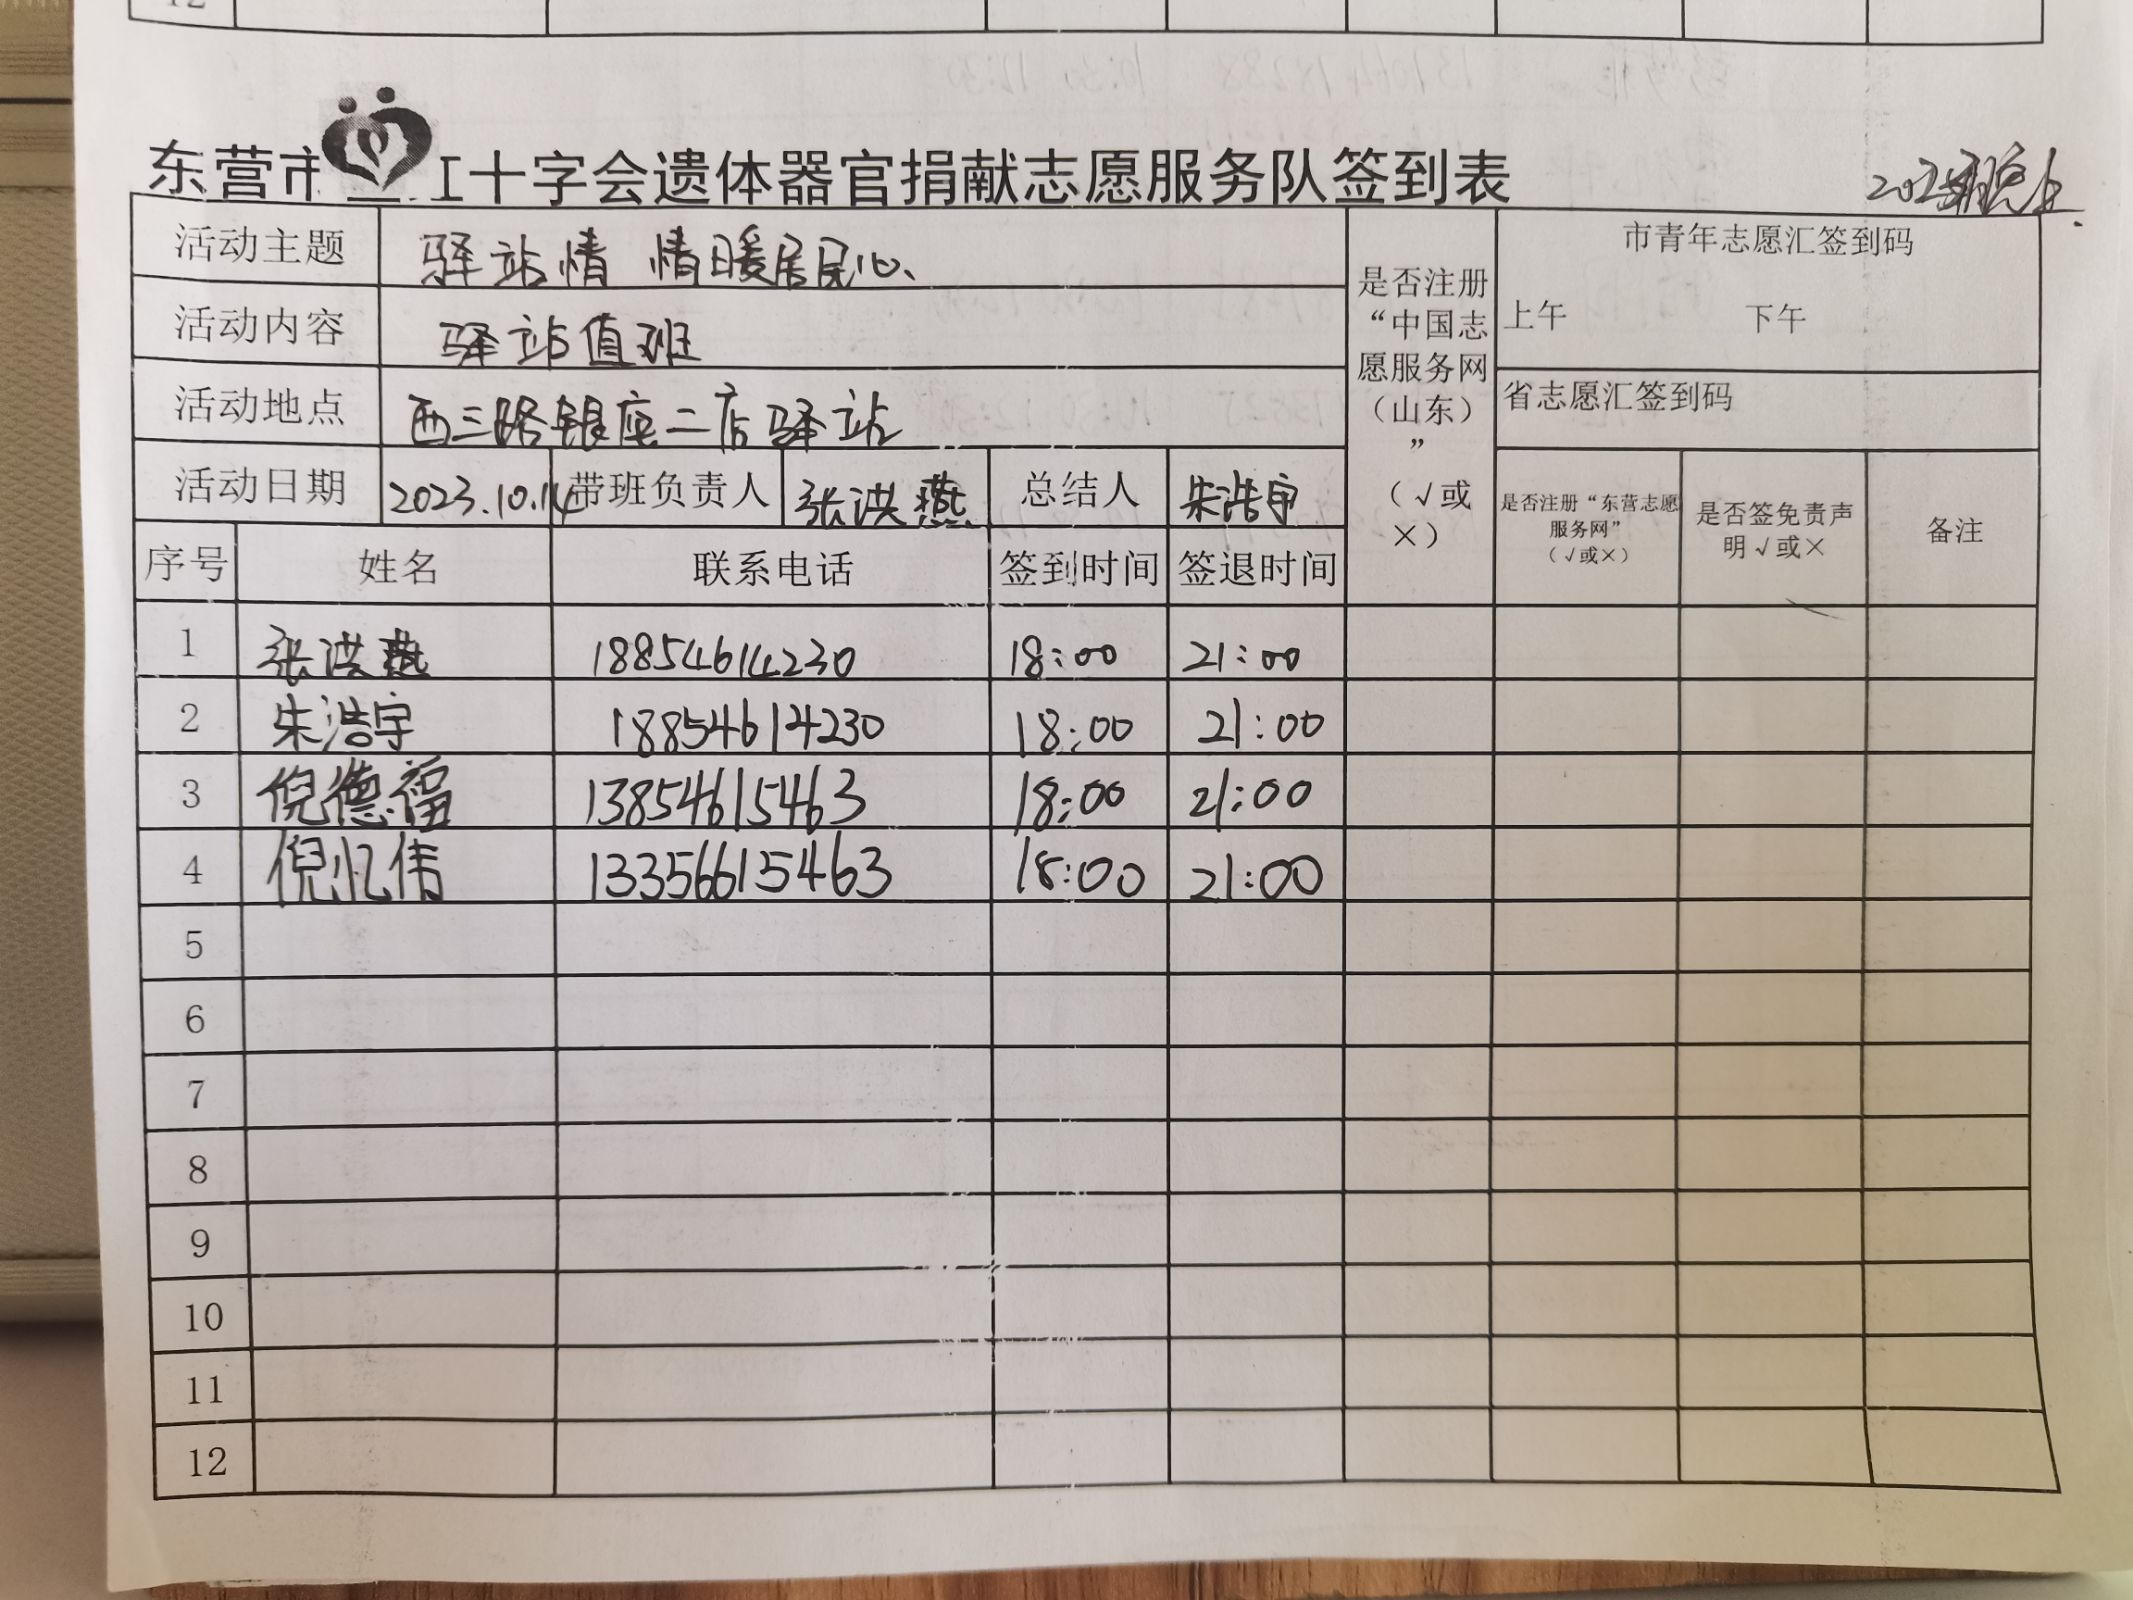 12
东营市 红十字会遗体器官捐献志愿服务队签到表
活动主题 驿站情 情暖居民心
是否注册“中国志愿服务网（山东）”（√或×）
市青年志愿汇签到码
上午 下午
活动内容 驿站值班
活动地点 西三路银座二店驿站
省志愿汇签到码
活动日期 2023.10.14 带班负责人 张洪燕 总结人 朱浩宇
是否注册“东营志愿服务网”（√或×） 是否签免责声明√或× 备注
序号 姓名 联系电话 签到时间 签退时间
1 张洪燕 18854614230 18:00 21:00
2 朱浩宇 18854614230 18:00 21:00
3 倪德福 13854615463 18:00 21:00
4 倪忆伟 13356615463 18:00 21:00
5
6
7
8
9
10
11
12